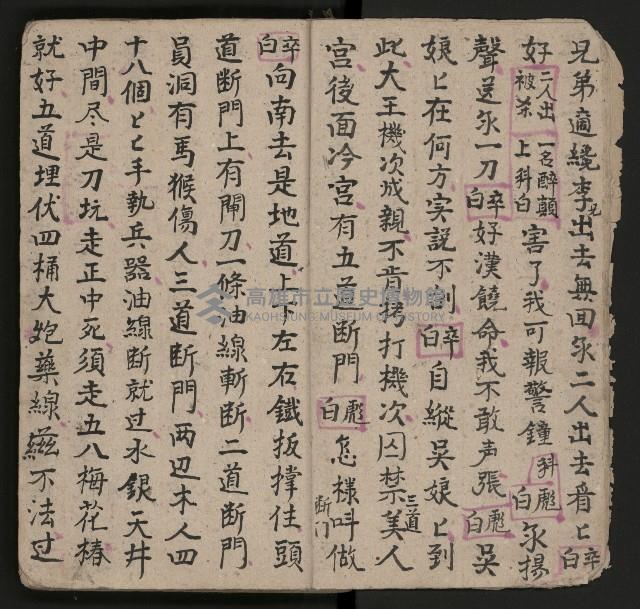 兄弟適纔李兄出去無回永二人出去看匕卒白
好二人出被杀一名醉顛上科白害了我可報警鐘科彪白永揚
聲送永一刀卒白好漢饒命我不敢声張彪白吳
娘匕在何方实説不剖卒白自縱吳娘匕到
此大王機次成親不肯拷打機次囚禁美人
宮後面冷宮有五道断門彪白怎樣叫做三道断门
卒白向南去是地道上下左右鐵扳撐住頭
道断門上有閘刀一條油線斬断二道断門
員洞有馬猴傷人三道断門两边木人四
十八個匕匕手執兵器油線断就过水銀天井
中間尽是刀坑走正中死須走五八梅花樁
就好五道埋伏四桶大炮藥線滋不法过
高雄市立歷史博物館
KAOHSIUNG MUSEUM OF HISTORY